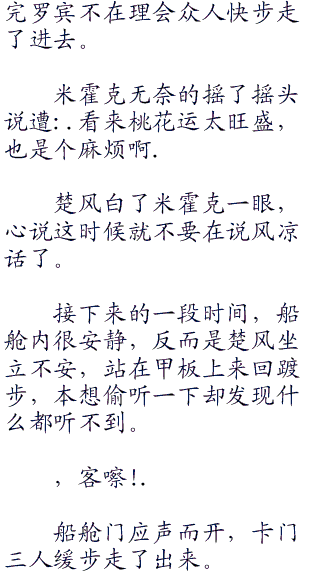 完罗宾不在理会众人快步走
了进去。
米霍克无奈的摇了摇头
说遭:.看来桃花运太旺盛，
也是个麻烦啊.
楚风白了米霍克一眼，
心说这时候就不要在说风凉
话了。
接下来的一段时间，船
舱内很安静，反而是楚风坐
立不安，站在甲板上来回踱
步，本想偷听一下却发现什
么都听不到。
，客嚓!.
船舱门应声而开，卡门
三人缓步走了出来。